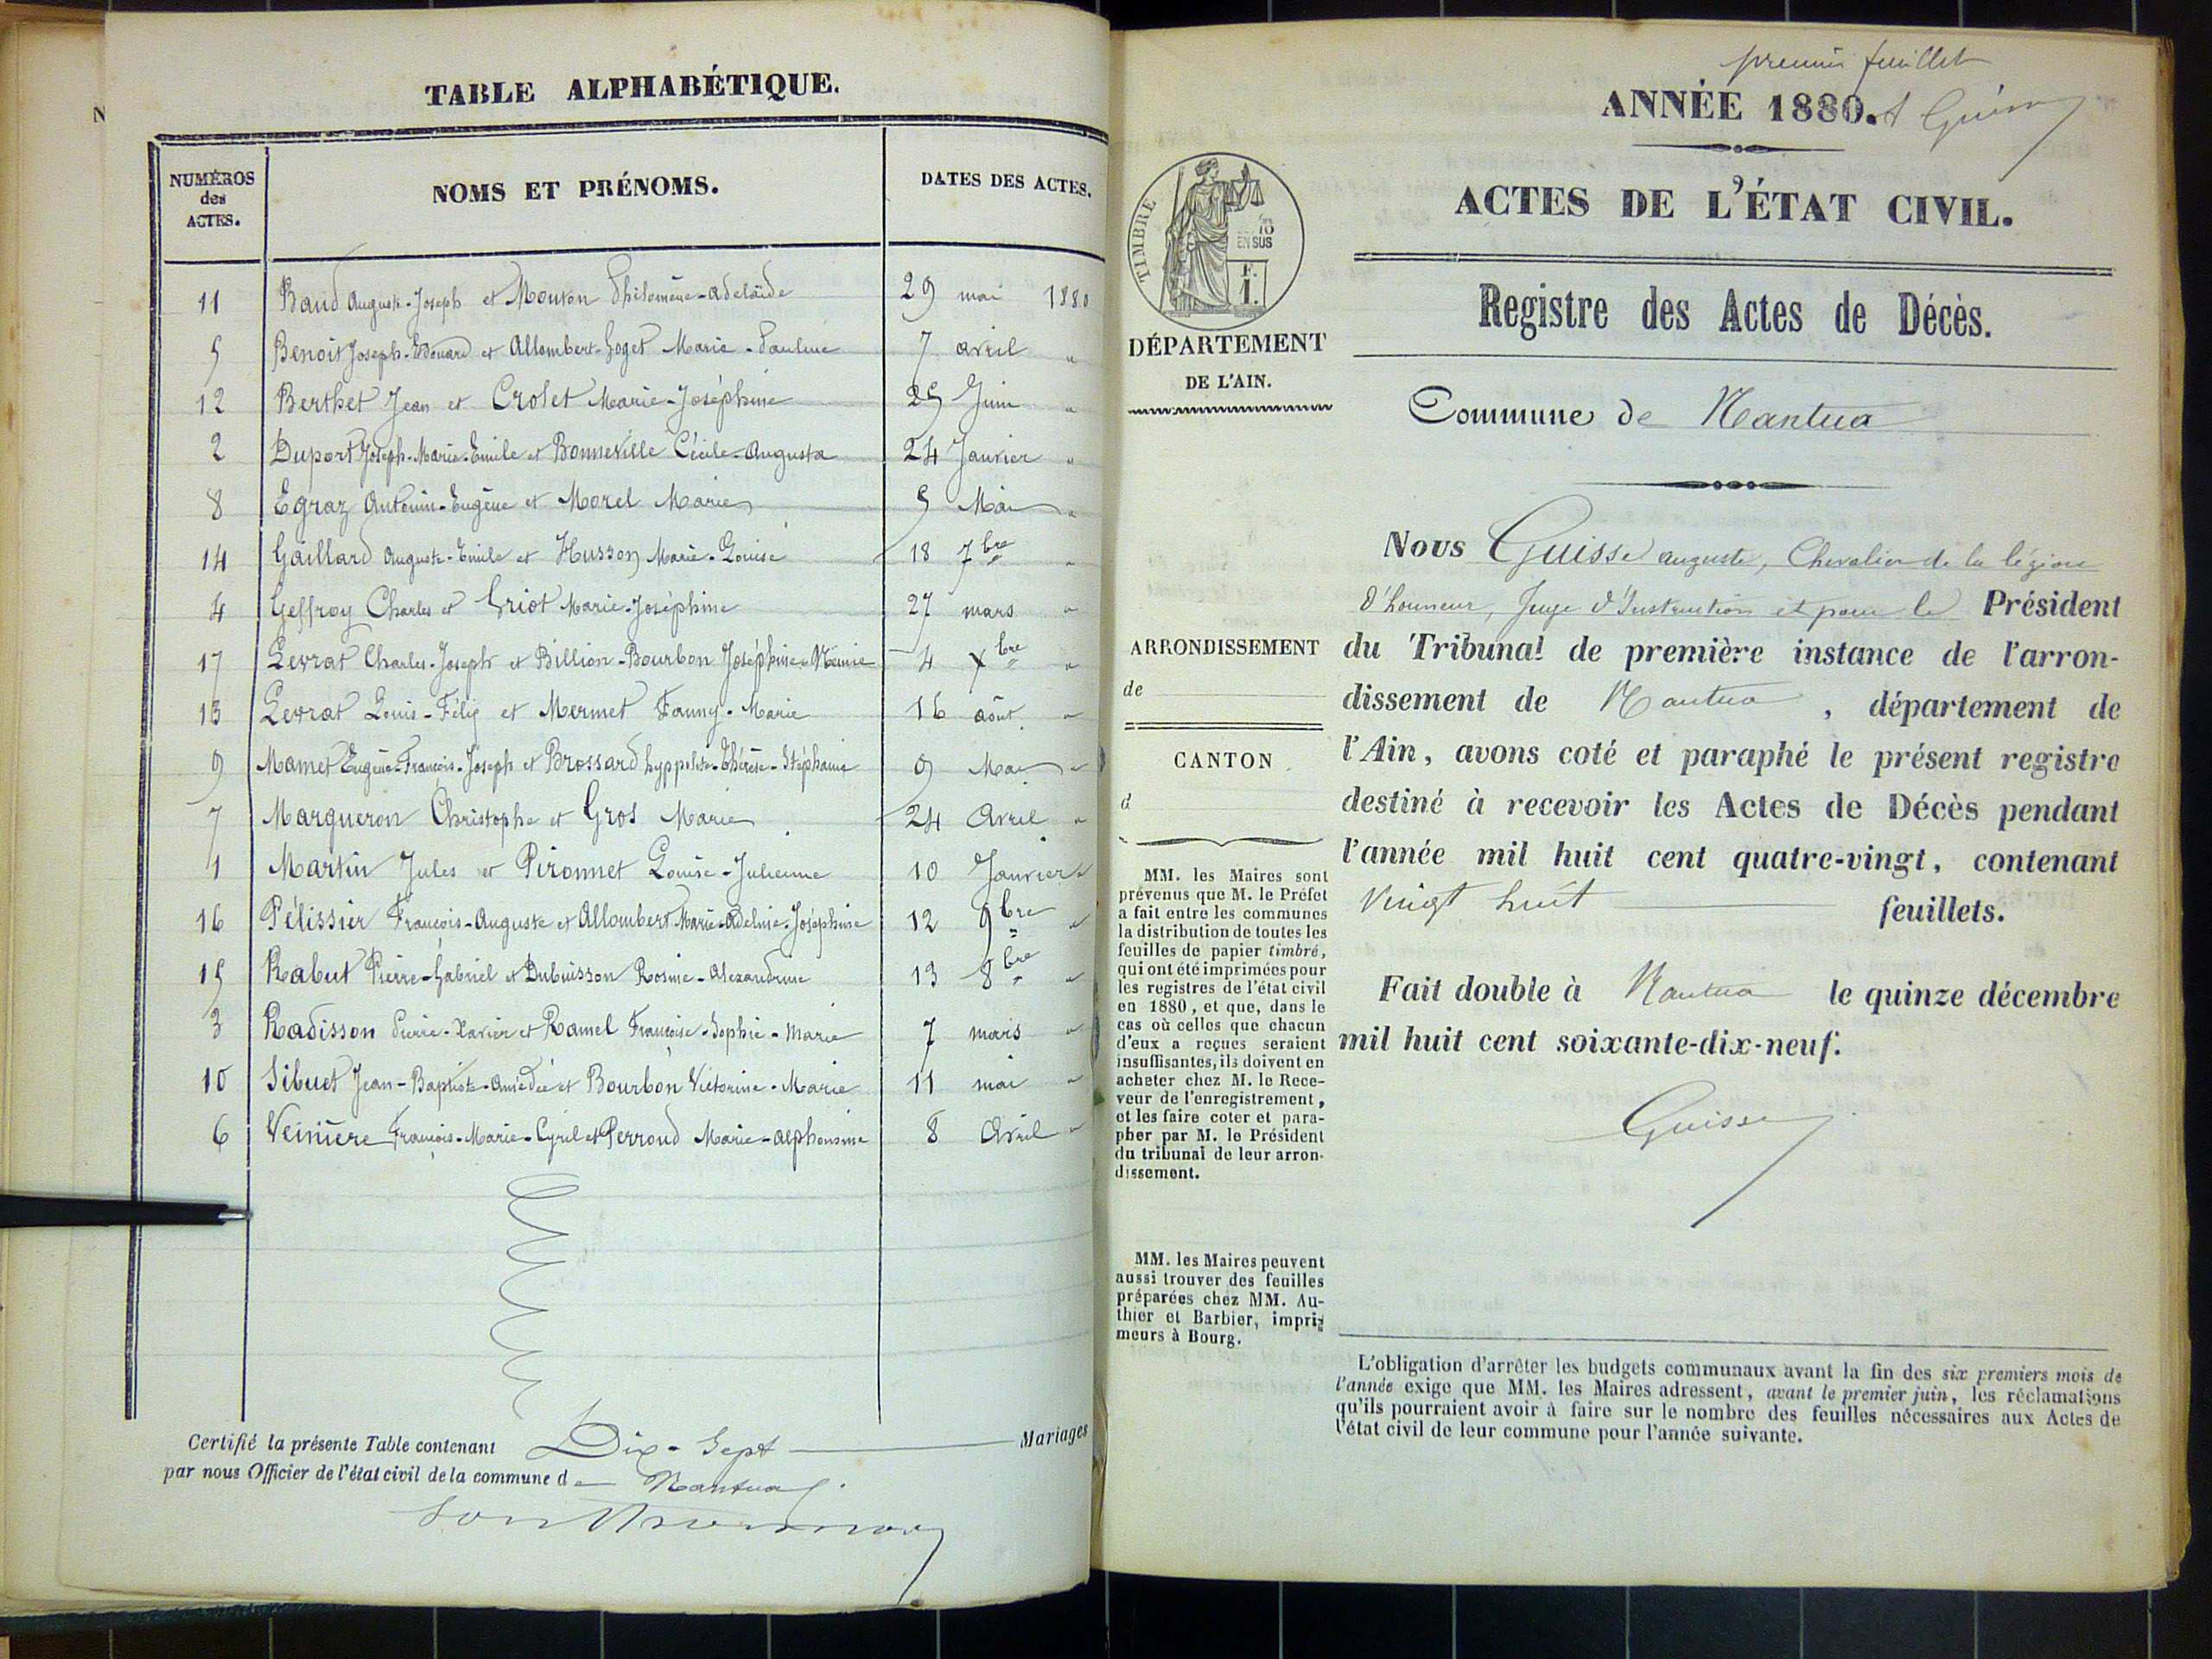 TABLE ALPHABÉTIQUE.
NUMÉROS des ACTES.
NOMS ET PRÉNOMS.
DATES DES ACTES.
11 Baud Auguste-Joseph et Mouton Philomène-Adelaïde 29 mai 1880
5 Benoit Joseph-Edouard et Allombert-Goget Marie-Pauline 7 avril "
12 Berthet Jean et Crolet Marie-Joséphine 25 Juin "
2 Duport Joseph-Marie-Emile et Bonneville Cécile-Augusta 24 Janvier "
8 Egraz Antonin-Eugène et Morel Marie 5 Mai "
14 Gaillard Auguste-Emile et Husson Marie-Louise 18 7bre "
4 Geffroy Charles et Griot Marie-Joséphine 27 mars "
17 Levrat Charles-Joseph et Billion-Bourbon Joséphine- 4 Xbre "
13 Levrat Louis-Félix et Mermet Fanny-Marie 16 août "
9 Mamet Eugène-François-Joseph et Brossard hyppolite-Thérèse-Stéphanie 9 Mai "
7 Marqueron Christophe et Gros Marie 24 Avril "
1 Martin Jules et Pironnet Louise-Julienne 10 Janvier "
16 Pélissier François-Auguste et Allombert Marie-Adeline-Joséphine 12 9bre "
15 Rabut Pierre-Gabriel et Dubuisson Rosine-Alexandrine 13 8bre "
3 Radisson Pierre-Xavier et Ramel Françoise-Sophie-Marie 7 mars "
10 Sibuet Jean-Baptiste-Amédée et Bourbon Victorine-Marie 11 mai "
6 Veinière François-Marie-Cyril et Perroud Marie-alphonsine 8 Avril "
Certifié la présente Table contenant Dix-Sept Mariages
par nous Officier de l'état civil de la commune de Nantua.
premier feuillet
ANNÉE 1880. A Guisse
ACTES DE L'ÉTAT CIVIL.
Registre des Actes de Décès.
Commune de Nantua
TIMBRE
EN SUS
F.
1.
DÉPARTEMENT
DE L'AIN.
ARRONDISSEMENT
de
CANTON
d
MM. les Maires sont
prévenus que M. le Préfet
a fait entre les communes
la distribution de toutes les
feuilles de papier timbré,
qui ont été imprimées pour
les registres de l'état civil
en 1880, et que, dans le
cas où celles que chacun
d'eux a reçues seraient
insuffisantes, ils doivent en
acheter chez M. le Rece-
veur de l'enregistrement,
et les faire coter et para-
pher par M. le Président
du tribunal de leur arron-
dissement.
MM. les Maires peuvent
aussi trouver des feuilles
préparées chez MM. Au-
thier et Barbier, impri-
meurs à Bourg.
Nous Guisse auguste, Chevalier de la légion
d'honneur, Juge d'Instruction et pour le Président
du Tribunal de première instance de l'arron-
dissement de Nantua, département de
l'Ain, avons coté et paraphé le présent registre
destiné à recevoir les Actes de Décès pendant
l'année mil huit cent quatre-vingt, contenant
Vingt huit feuillets.
Fait double à Nantua le quinze décembre
mil huit cent soixante-dix-neuf.
Guisse
L'obligation d'arrêter les budgets communaux avant la fin des six premiers mois de
l'année exige que MM. les Maires adressent, avant le premier juin, les réclamations
qu'ils pourraient avoir à faire sur le nombre des feuilles nécessaires aux Actes de
l'état civil de leur commune pour l'année suivante.